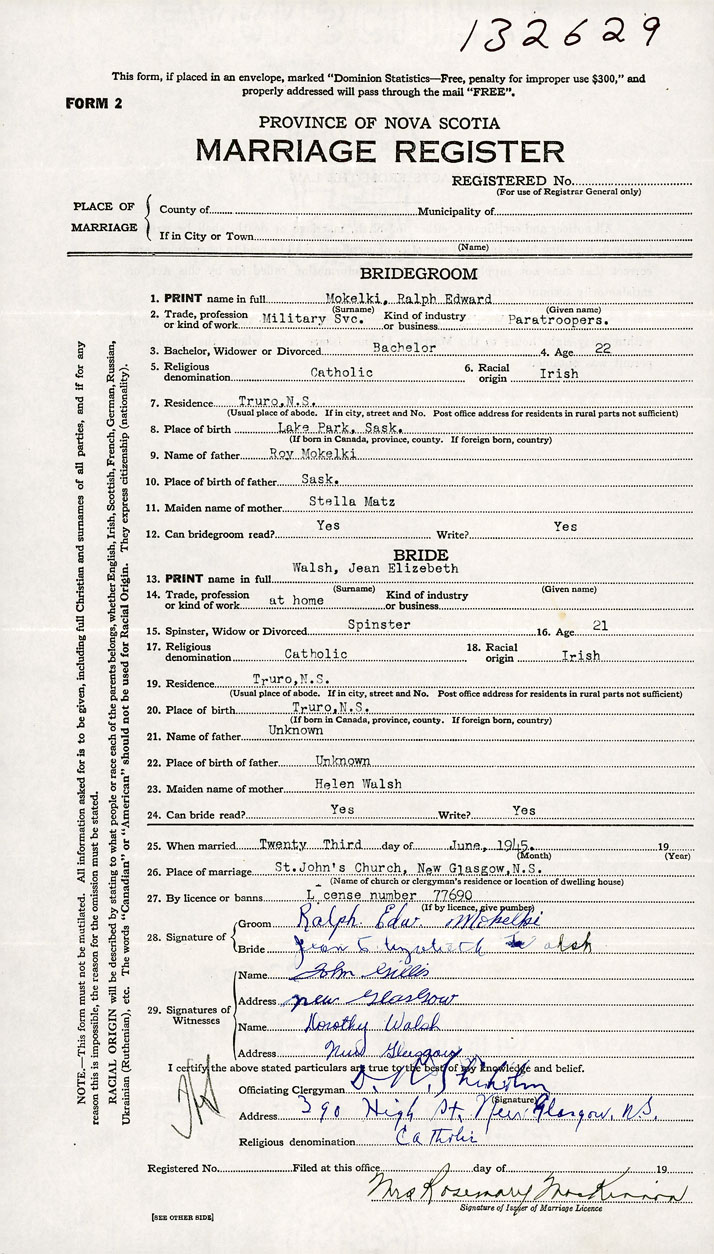 132629
This form, if placed in an envelope, marked "Dominion Statistics—Free, penalty for improper use $300," and
properly addressed will pass through the mail "FREE".
FORM 2
PROVINCE OF NOVA SCOTIA
MARRIAGE REGISTER
REGISTERED No.
(For use of Registrar General only)
PLACE OF MARRIAGE
County of Municipality of
If in City or Town
(Name)
BRIDEGROOM
1. PRINT name in full Mokelki, Ralph Edward
(Surname) (Given name)
2. Trade, profession or kind of work Military Svc. Kind of industry or business Paratroopers.
3. Bachelor, Widower or Divorced Bachelor 4. Age 22
5. Religious denomination Catholic 6. Racial origin Irish
7. Residence Truro,N.S.
(Usual place of abode. If in city, street and No. Post office address for residents in rural parts not sufficient)
8. Place of birth Lake Park, Sask.
(If born in Canada, province, county. If foreign born, country)
9. Name of father Roy Mokelki
10. Place of birth of father Sask.
11. Maiden name of mother Stella Matz
12. Can bridegroom read? Yes Write? Yes
BRIDE
13. PRINT name in full Walsh, Jean Elizebeth
(Surname) (Given name)
14. Trade, profession or kind of work at home Kind of industry or business
15. Spinster, Widow or Divorced Spinster 16. Age 21
17. Religious denomination Catholic 18. Racial origin Irish
19. Residence Truro,N.S.
(Usual place of abode. If in city, street and No. Post office address for residents in rural parts not sufficient)
20. Place of birth Truro,N.S.
(If born in Canada, province, county. If foreign born, country)
21. Name of father Unknown
22. Place of birth of father Unknown
23. Maiden name of mother Helen Walsh
24. Can bride read? Yes Write? Yes
25. When married Twenty Third day of June, 1945. 19
(Month) (Year)
26. Place of marriage St.John's Church, New Glasgow,N.S.
(Name of church or clergyman's residence or location of dwelling house)
27. By licence or banns L cense number 77690
(If by licence, give number)
28. Signature of
Groom Ralph Edw Mokelki
Bride Jean Elizabeth Walsh
29. Signatures of Witnesses
Name John Gillis
Address New Glasgow
Name Dorothy Walsh
Address New Glasgow
I certify the above stated particulars are true to the best of my knowledge and belief.
Officiating Clergyman D. Chisholm
(Signature)
Address 390 High St. New Glasgow, N.S.
Religious denomination Catholic
Registered No. Filed at this office day of 19
Mrs Rosemary MacKinnon
Signature of Issuer of Marriage Licence
[SEE OTHER SIDE]
NOTE.—This form must not be mutilated. All information asked for is to be given, including full Christian and surnames of all parties, and if for any
reason this is impossible, the reason for the omission must be stated.
RACIAL ORIGIN will be described by stating to what people or race each of the parents belongs, whether English, Irish, Scottish, French, German, Russian,
Ukrainian (Ruthenian), etc. The words "Canadian" or "American" should not be used for Racial Origin. They express citizenship (nationality).